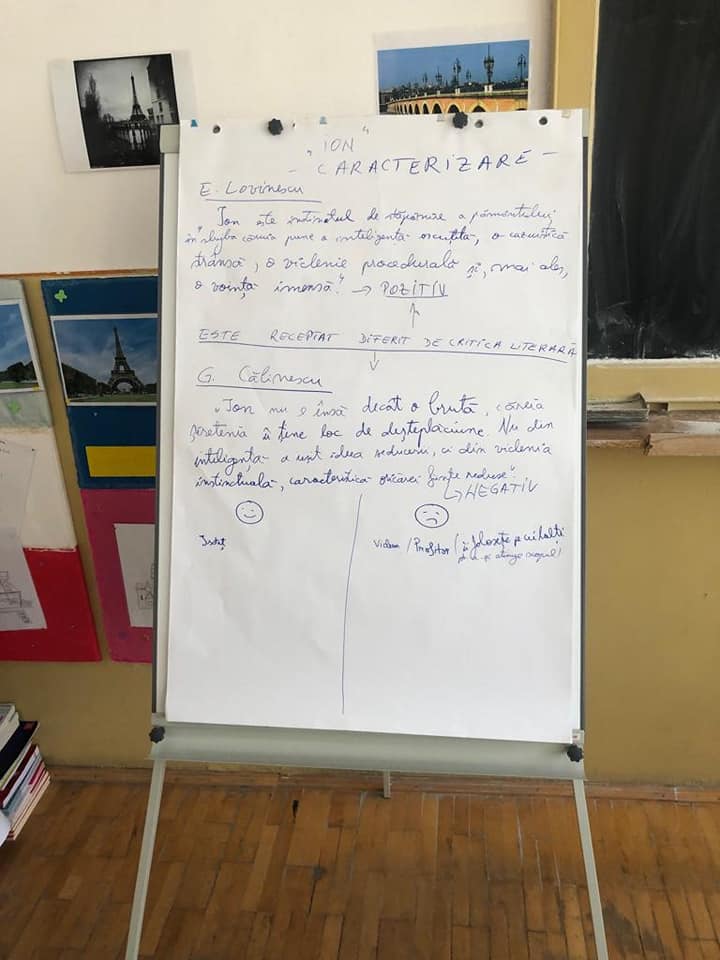 „ION"
- CARACTERIZARE -
E. Lovinescu
„Ion este instinctul de stăpânire a pământului,
în slujba căruia pune o inteligență ascuțită, o cazuistică
strânsă, o viclenie procedurală și, mai ales,
o voință imensă." → POZITIV
ESTE RECEPTAT DIFERIT DE CRITICA LITERARĂ
G. Călinescu
„Ion nu e însă decât o brută, căreia
șiretenia îi ține loc de deșteptăciune. Nu din
inteligență a ieșit ideea seducerii, ci din viclenia
instinctuală, caracteristică oricărei ființe reduse".
→ NEGATIV
Isteț
Viclean / Profitor (îi folosește pe ceilalți
pt. a-și atinge scopul)